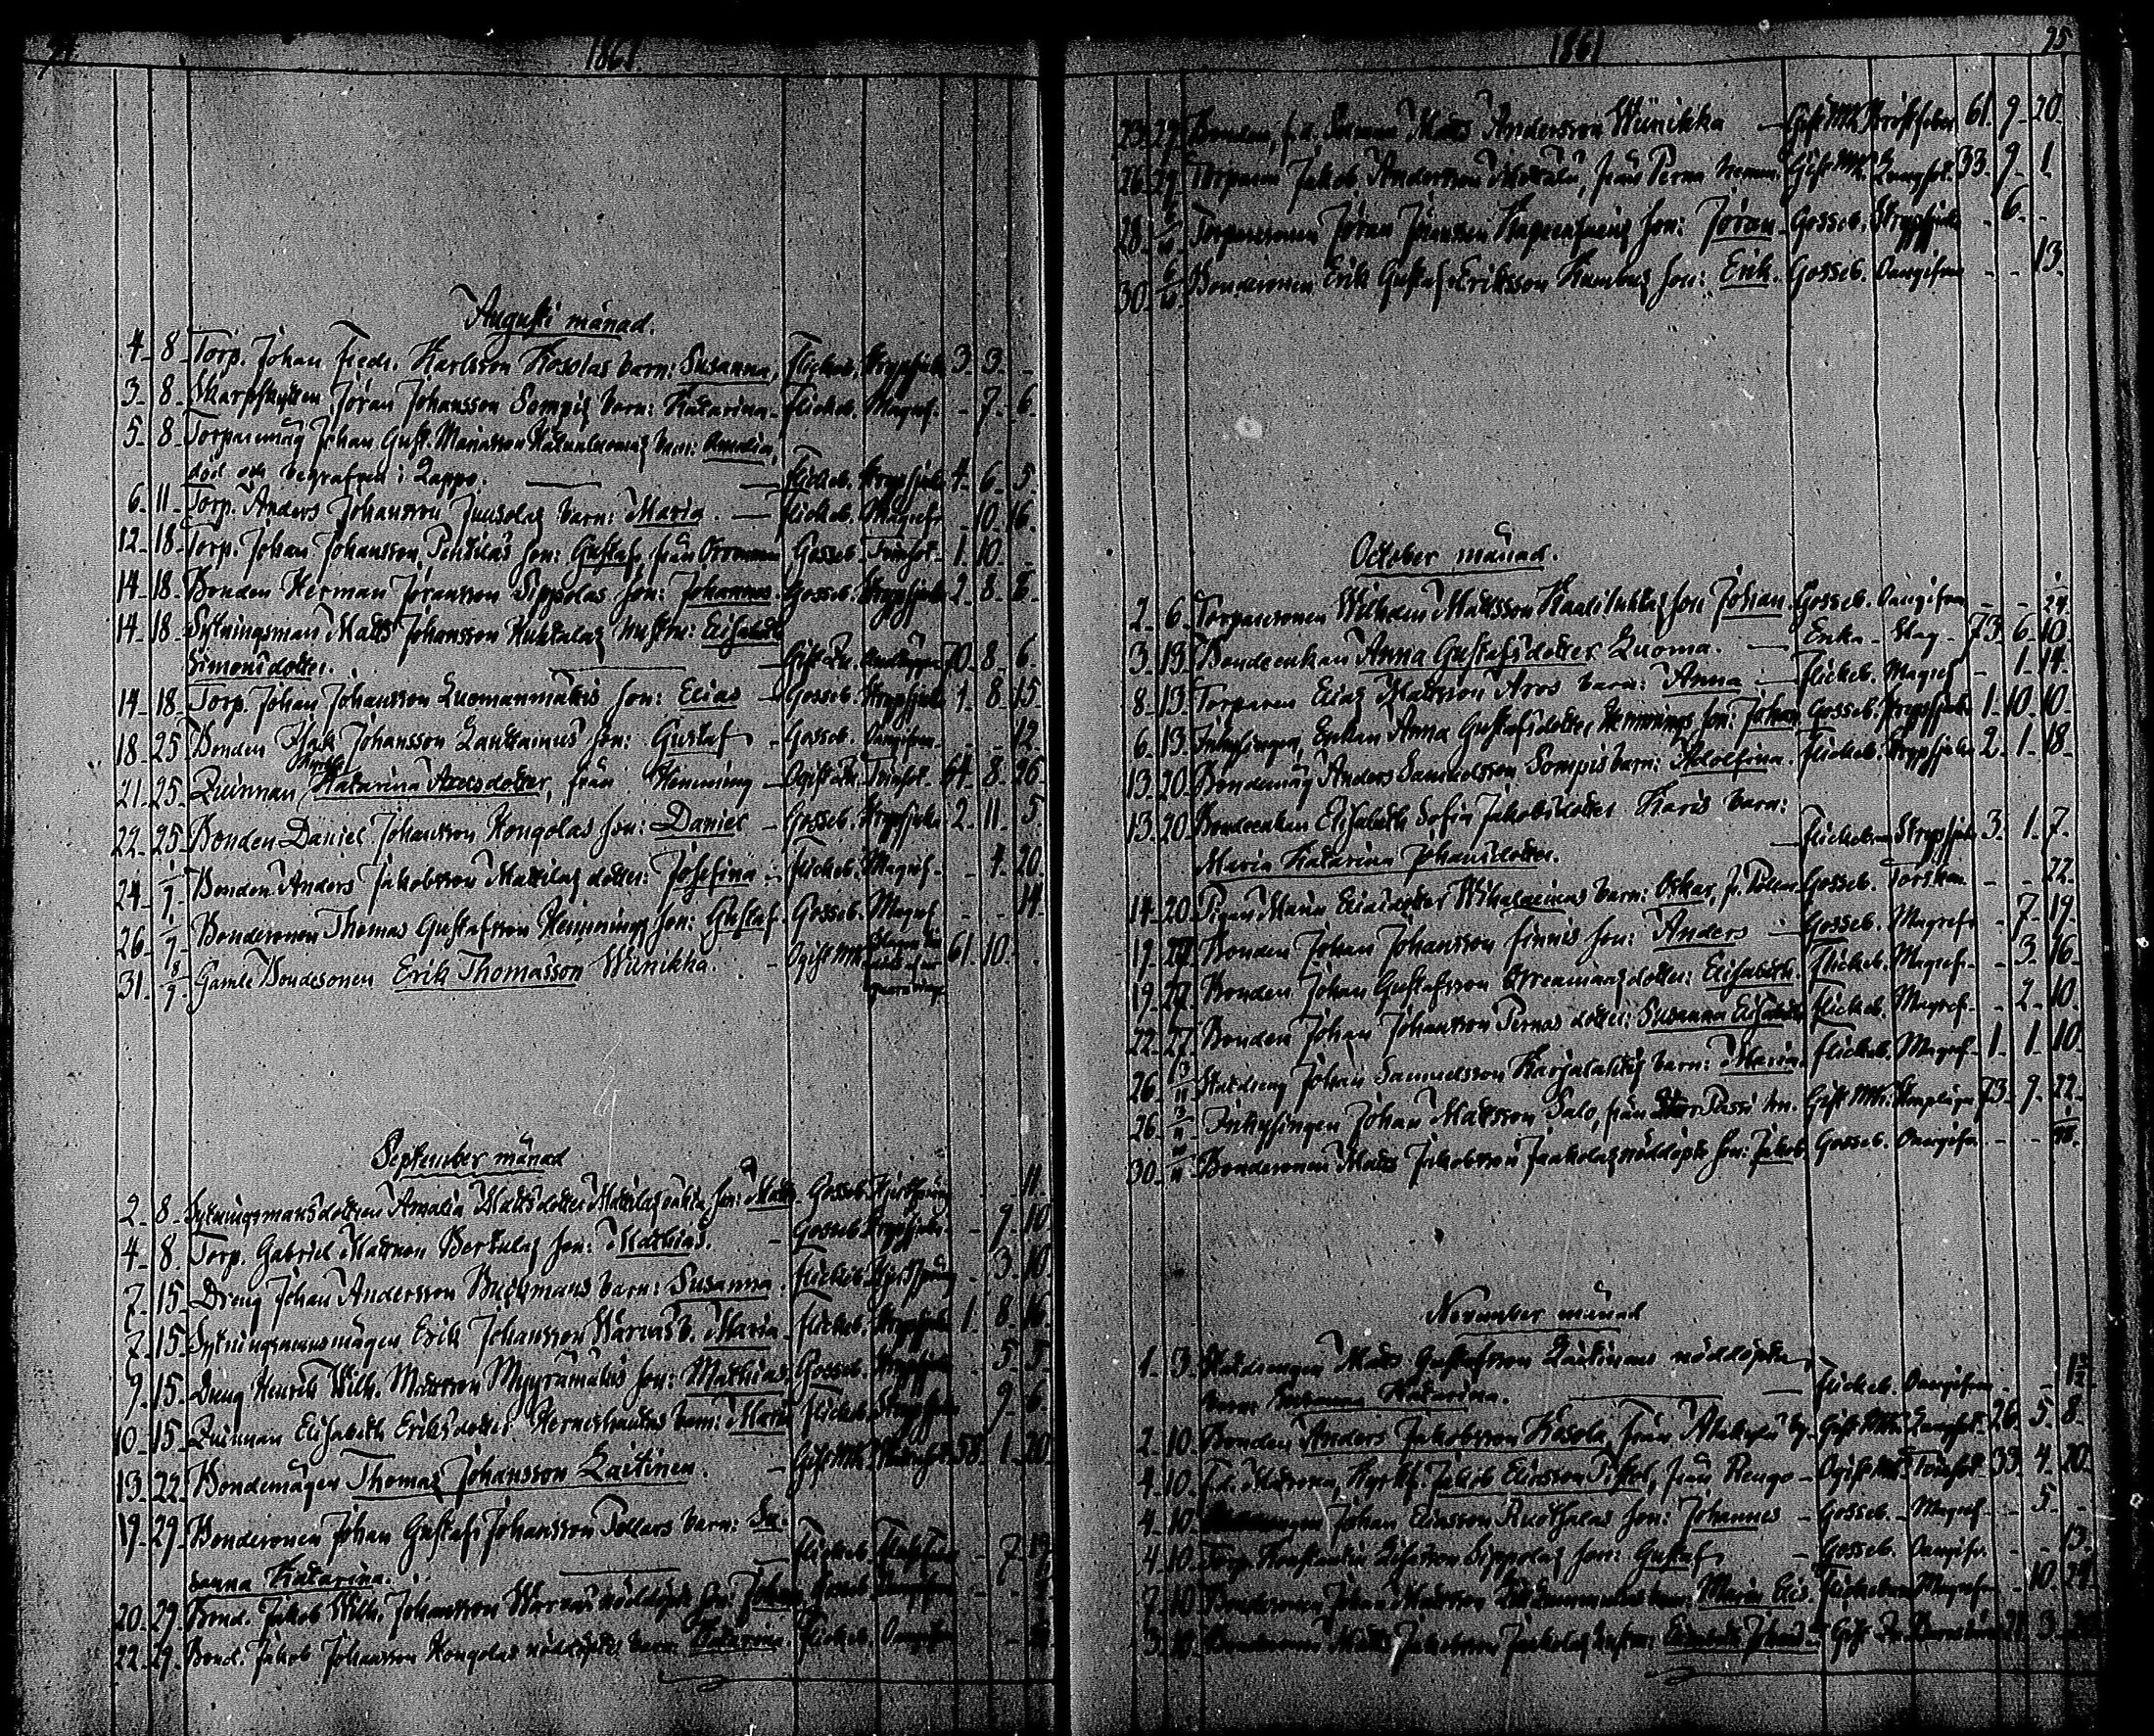 1861.
Augusti månad.
4. 8. Torp. Johan Fredr. Karlsson Kosolas barn: Susanna, Flickeb. Strypsjuk. 3. 3.
3. 8. Skarpskytten Jöran Johansson Sompis barn: Katarina. Flickeb. Magref. 7. 6.
5. 8. Torparemåg Johan Gust. barn: Amalia,
död och begrafven i Lappo. Flickeb. Strypsjuk. 4. 6. 5.
6. 11. Torp. Anders Johansson Juusolas barn: Maria. Flickeb. Magref. 10. 16.
12. 18. Torp. Johan Johansson Penttilas son: Gustaf, från Gosseb. Tvinsot. 1. 10.
14. 18. Bonden Herman Jöransson Sippolas son: Johannes. Gosseb. Strypsjuk. 2. 8.
14. 18. Sytningsman Matts Johansson Huhtalas hustru: Elisabeth
Simonsdotter. Gift Qv. 70. 8. 6.
14. 18. Torp. Johan Johansson Luomanmäkis son: Elias Gosseb. Strypsjuk. 1. 8. 15.
18. 25. Bonden Isak Johansson Lauttamus son: Gustaf Gosseb. Oangifven. 12.
21. 25. Quinnan Katarina från Hemming Ogift Qv. Tvinsot. 64. 8. 26.
22. 25. Bonden Daniel Johansson Kongolas son: Daniel Gosseb. Strypsjuk. 2. 11. 5.
24. 1/9. Bonden Anders Jakobsson Mattilas dotter: Josefina Flickeb. Magref. 4. 20.
26. 1/9. Bondesonen Thomas Gustafsson Hemmings son: Gustaf Gosseb. Magref. 14.
31. 8/9. Gamle Bondesonen Erik Thomasson Wiinikka. Ogift Mk. 61. 10.
September månad
2. 8. Sytningsmansdottren Amalia Mattsdotter son: Matts Gosseb. 11.
4. 8. Torp. Gabriel Mattsson Bertulas son: Mathias. Gosseb. Strypsjuk. 9. 10.
7. 15. Dreng Johan Andersson barn: Susanna. Flickeb. 3. 10.
7. 15. Sytningsmansmågen Erik Johansson Warvas b. Maria. Flickeb. Strypsjuk. 1. 8. 16.
9. 15. Dreng Henrik Wilh. Mattsson Myyrämäkis son: Mathias. Gosseb. Strypsjuk. 5. 5.
10. 15. Quinnan Elisabeth Eriksdotter barn: Maria Flickeb. Strypsjuk. 9. 6.
13. 22. Bondemågen Thomas Johansson Laitinen. Gift Mk. 58. 1. 20.
19. 29. Bondesonen Johan Gustaf Johansson Tollars barn: Su-
sanna Katarina. Flickeb. 7. 19.
20. 29. Bond. Jakob Wilh. Johansson Warvas nöddöpte son: Johan Gosseb.
22. 29. Bond. Jakob Johansson Kongolas nöddöpte barn: Katarina. Flickeb. Oangifven
1861 75
23. 29. Bonden, f.d. Matts Andersson Wiinikka Gift Mk. 61. 9. 20.
26. 29. Torparen Jakob Andersson från Perna hemm. Gift Mk. Lungsot. 33. 9. 1.
28. 6/10. Torparesonen Jöran Jöransson son: Jöran Gosseb. Strypsjuk. 6.
30. 6/10. Bondesonen Erik Gustaf Eriksson son: Erik. Gosseb. Oangifven 13.
October månad.
2. 6. Torparesonen Wilhelm Mattsson son Johan. Gosseb. Oangifven 24.
3. 13. Bondeenkan Anna Gustafsdotter Luoma. Enka. Slag. 73. 6. 10.
8. 13. Torparen Elias Mattsson Aros barn: Anna Flickeb. Magref. 1. 14.
6. 13. Inhysingen, Enkan Anna Gustafsdotter Hemmings son: Johan Gosseb. Strypsjuk. 1. 10. 10.
13. 20. Bondemåg Anders Samuelsson Sompis barn: Adolfina. Flickeb. Strypsjuk. 2. 1. 18.
13. 20. Bondeenkan Elisabeth Sofia Jakobsdotter Karis barn:
Maria Katarina Johansdotter. Flickebarn Strypsjuk. 3. 1. 7.
14. 20. Pigan Maria Eliasdotter barn: Oskar, Gosseb. Torsken. 22.
19. 27. Bonden Johan Johansson Finnis son: Anders Gosseb. Magref. 7. 19.
19. 27. Bonden Johan Gustafsson dotter: Elisabeth. Flickeb. Magref. 3. 16.
22. 27. Bonden Johan Johansson Pernas dotter: Susanna Elisabeth Flickeb. Magref. 2. 10.
26. Statdreng Johan Samuelsson Karjalahtis barn: Maria. Flickeb. Magref. 1. 1. 10.
26. 3/11. Inhysingen Johan Mattsson Salo, från Passi hm. Gift Mk. 73. 9. 22.
30. Bondesonen Matts Jakobsson Jaakolas nöddöpte son: Jakob Gosseb. Oangifven
November månad
1. 3. Statdrengen Matts Gustafsson Laitinens nöddöpta
barn: Susanna Katarina. Flickeb. Oangifven 1/2.
2. 10. Bonden Anders Jakobsson Kosola, från Alakylä by. Gift Mk. Lungsot. 26. 5. 8.
4. 10. F.d. Jakob Eliasson från Rengo Ogift Mk. Tvinsot. 33. 4. 20.
4. 10. Johan Eliasson Ruothalas son: Johannes Gosseb. Magref. 5.
4. 10. Torp. Konstantin Sippolas son: Gustaf Gosseb. Oangifv. 13.
7. 10. Bondesonen Johan Mattsson barn: Maria Elis. Flickebarn Magref. 10. 29.
3. 10. Bondesonen Matts Jakobsson Jaakolas hustru: Elisabeth Gift Qv. 3.